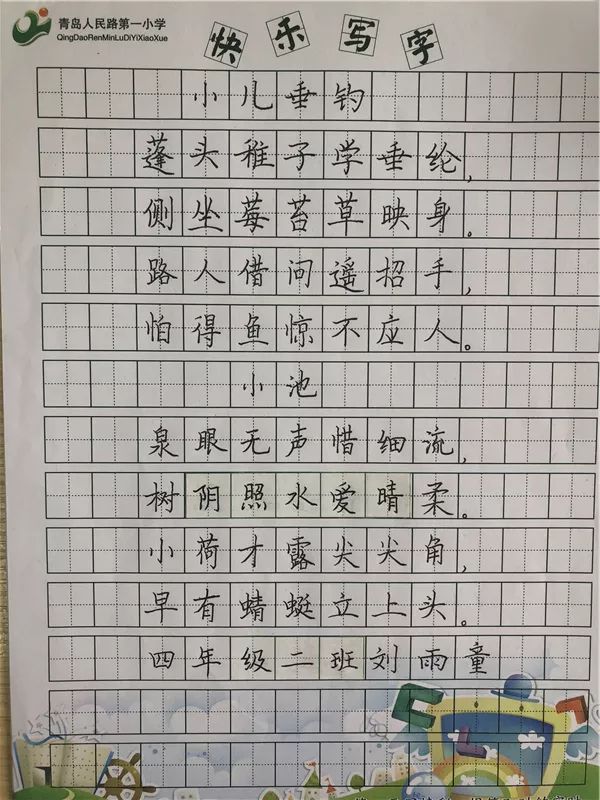 青岛人民路第一小学
QingDaoRenMinLuDiYiXiaoXue
快乐写字
小儿垂钓
蓬头稚子学垂纶,
侧坐莓苔草映身。
路人借问遥招手,
怕得鱼惊不应人。
小池
泉眼无声惜细流,
树阴照水爱晴柔。
小荷才露尖尖角,
早有蜻蜓立上头。
四年级二班刘雨童